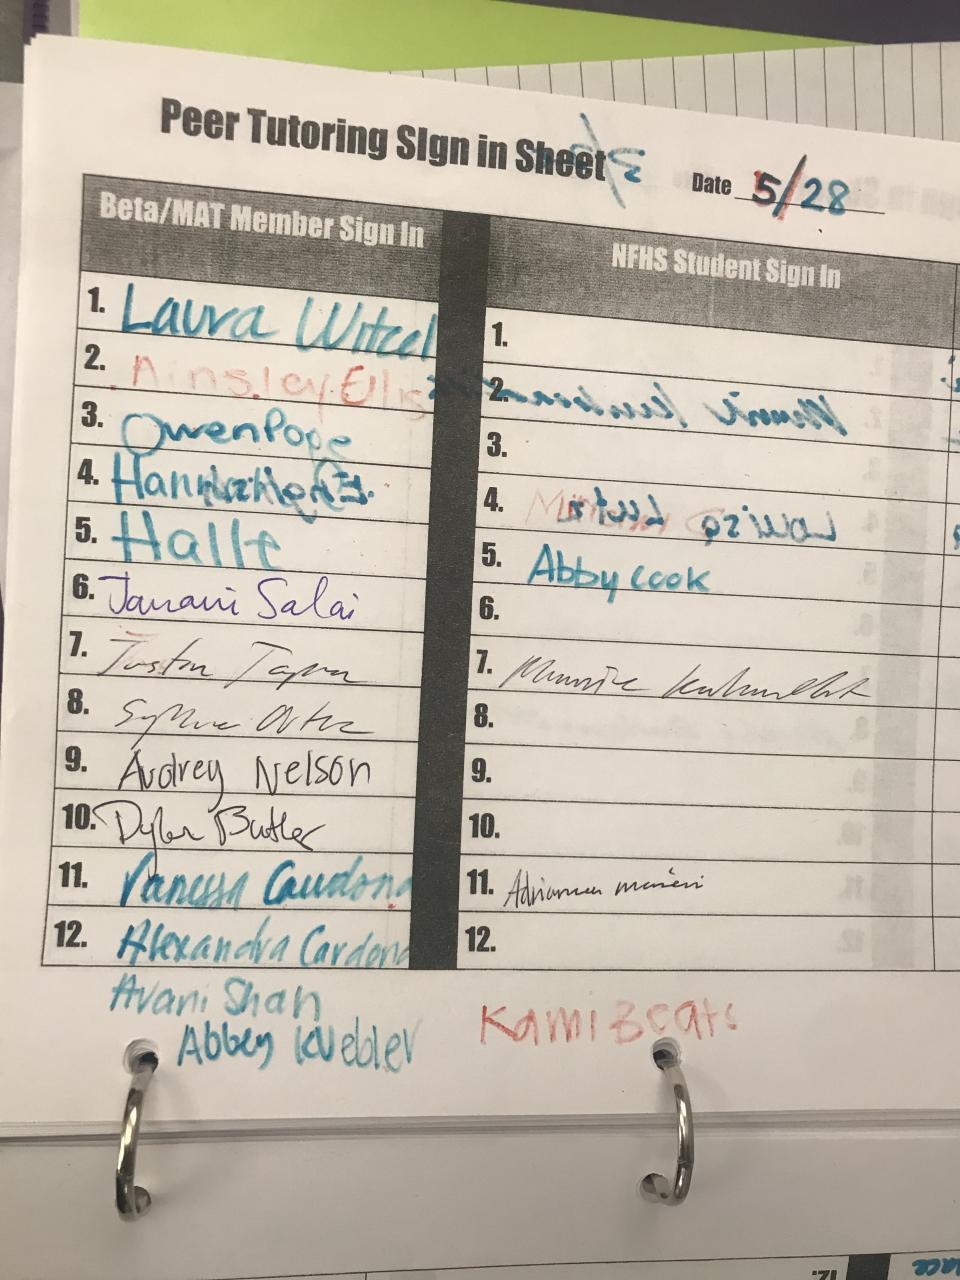 Peer Tutoring SIgn in Sheet
Date 5/28
Beta/MAT Member Sign In
NFHS Student Sign In
1. Laura Witzel
1.
2. Ainsley Ellis
2.
3. Owen Pope
3.
4. Hannah
4.
5. Halle
5. Abby Cook
6. Janani Salai
6.
7.
7.
8.
8.
9. Audrey Nelson
9.
10. Dylan Butler
10.
11. Vanessa Cardona
11.
12. Alexandra Cardona
12.
Avani Shah
Abbey Kuebler
Kami Beats